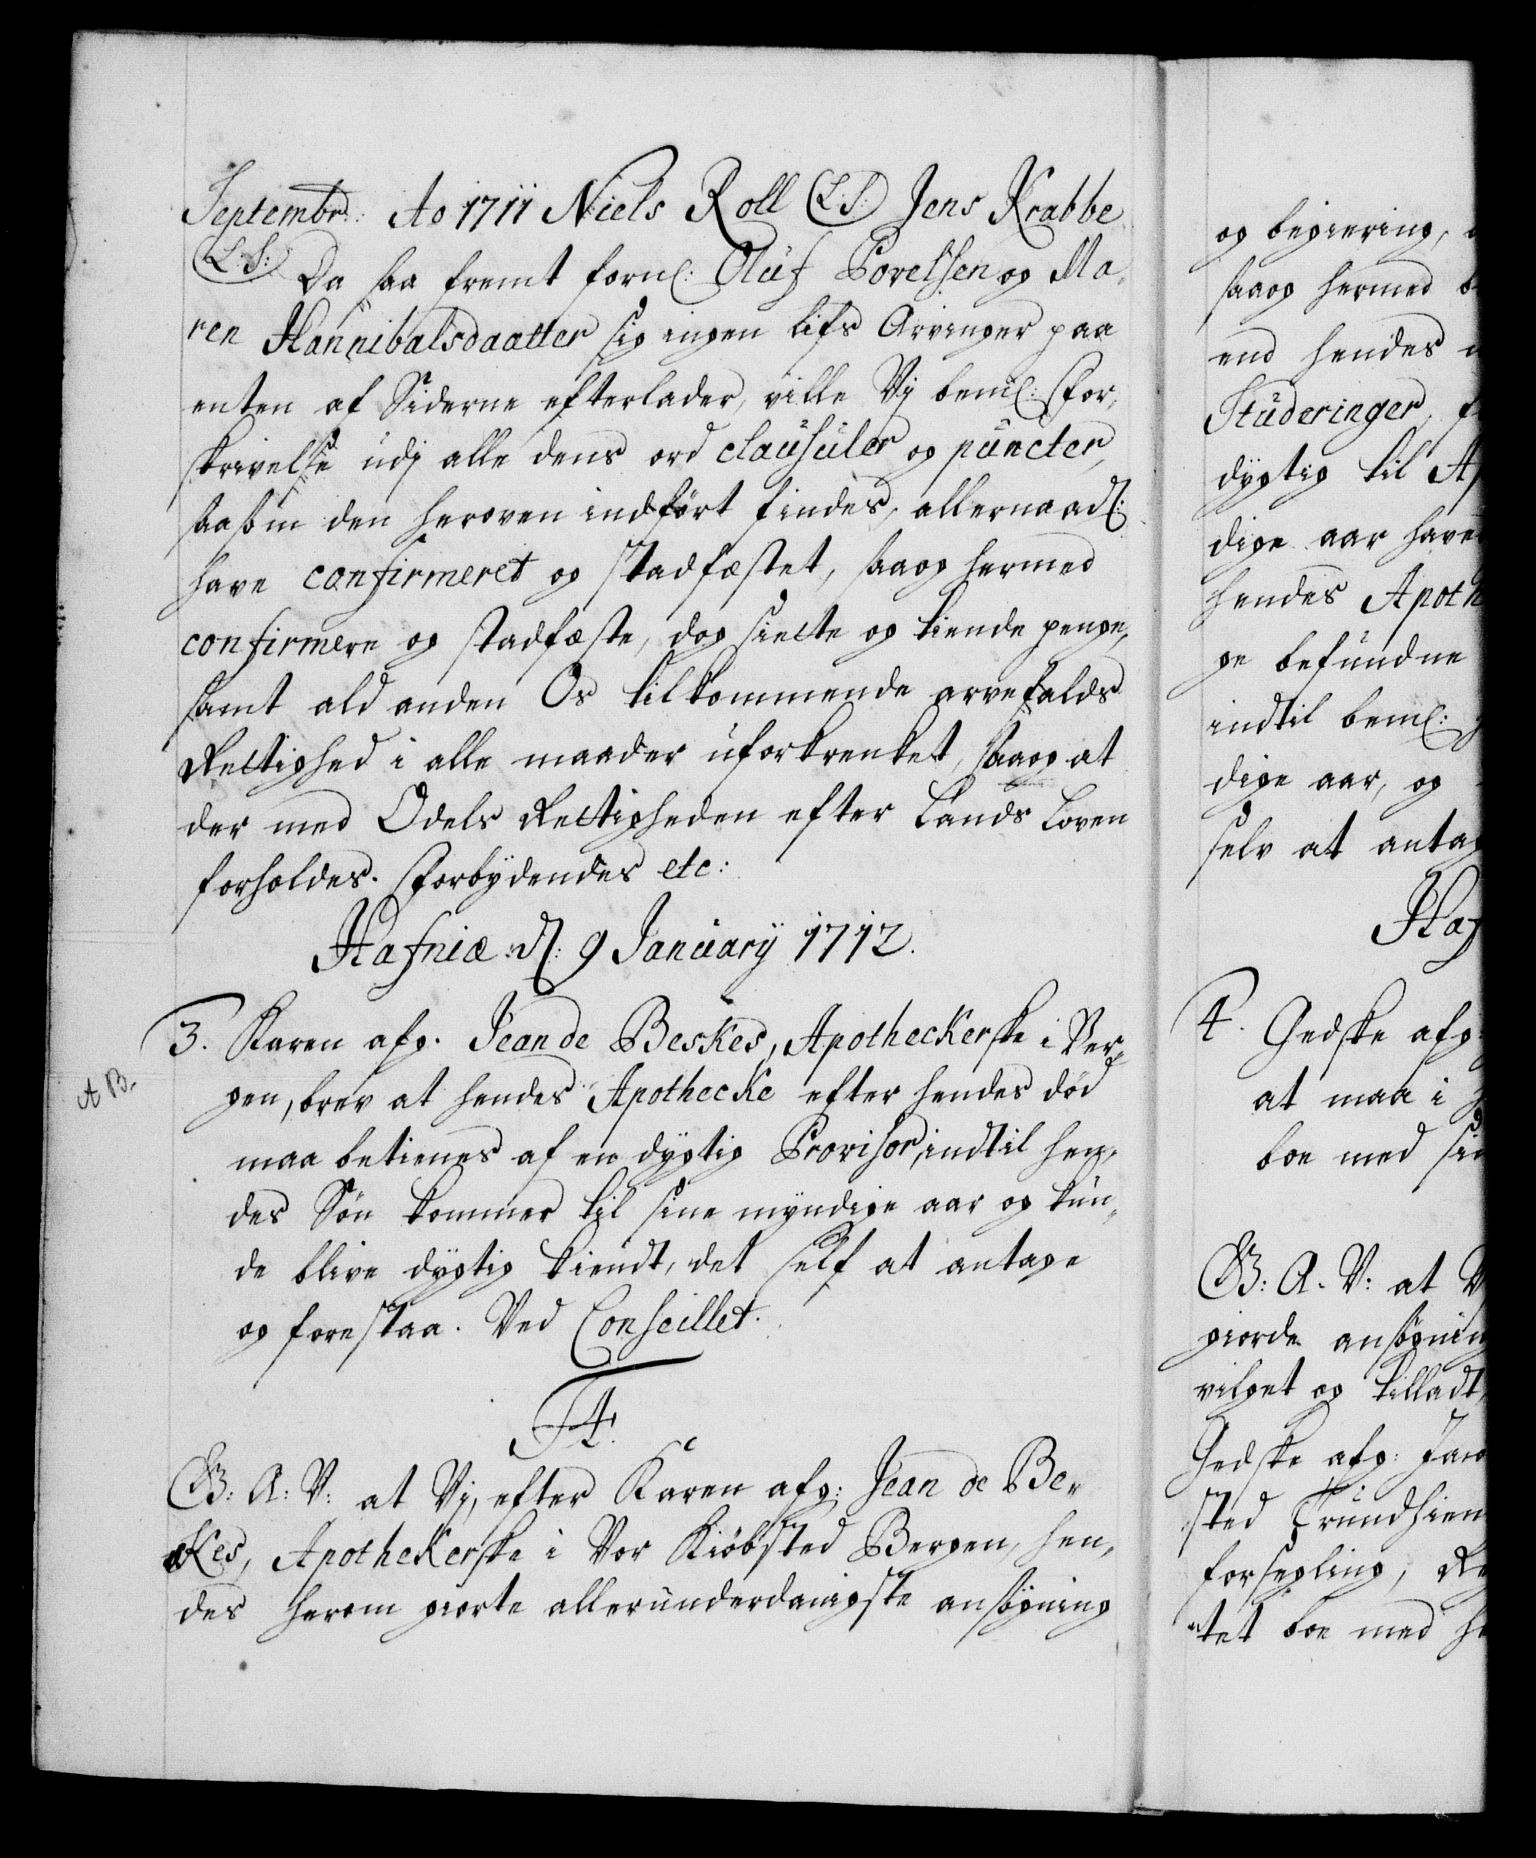 Septembr: Ao 1711 Niels Roll (L.S.) Jens Krabbe
(L.S:) Da saa fremt fornl: Oluf Povelssen og Ma,
ren Hannibalsdaatter sig ingen lifs Arvinger paa
enten af Siderne efterlader, ville Vj beml: For,
skrivelse udj alle dens ord clausuler og puncter,
saasom den heroven indført findes, allernaadl:
have confirmeret og stadfæstet, saaog hermed
confirmere og stadfæste, dog siette og tiende penge,
samt ald anden Os tilkommende arvefalds
Rettighed i alle maader uforkrenket, saaog at
der med Odels Rettigheden efter Lands Loven
forholdes. Forbydendes etc:
Hafniæ d: 9 January 1712.
3. Karen afg. Jean de Beskes, Apotheckerske i Ber,
gen, brev at hendes Apothecke efter hendes død
A B.
maa betienes af en dygtig Provisor, indtil hen,
des Søn kommer til sine myndige aar og kun,
de blive dygtig kiendt, det self at antage
og forestaa. Ved Conseillet.
F4.
G: A: V: at Vj, efter Karen afg: Jean de Be,
skes, Apothekerske i Vor Kiøbsted Bergen, hen,
des herom giorte allerunderdanigste ansøgning
og begiering,
saaog hermed
end hendes
Studeringer,
dygtig til
dige aar have
hendes Apoth
ge befundne
indtil beml:
dige aar, og
selv at antag
Haf
4. Gedske afg:
at maa i
boe med
G: A. V: at
giorde ansøgning
vilget og tilladt,
Gedske afg:
sted Trundhiem
forsegling,
tet boe med